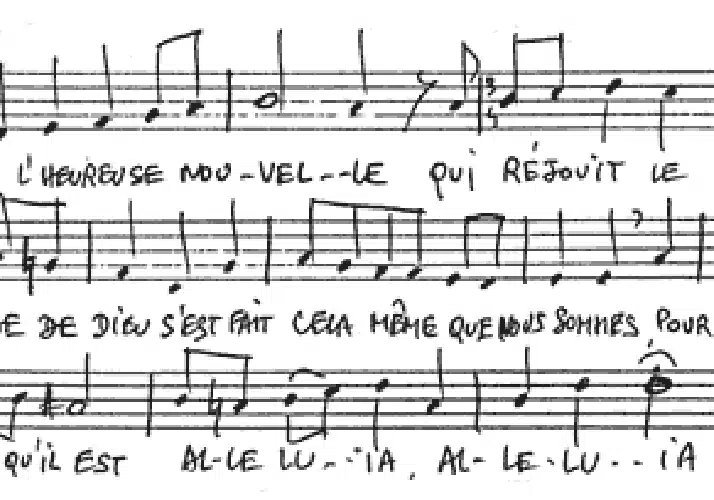 L'HEUREUSE NOU-VEL--LE QUI RÉJOUIT LE
DE DIEU S'EST FAIT CELA MÊME QUE NOUS SOMMES, POUR
QU'IL EST AL-LE LU--IA, AL-LE-LU--IA